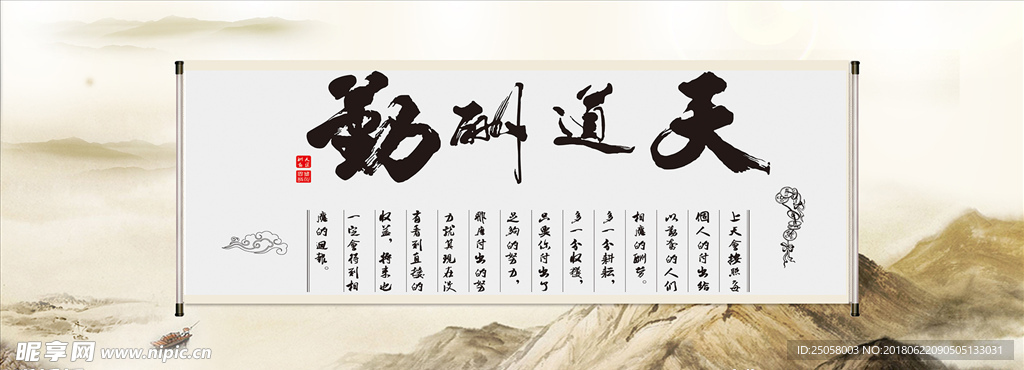 天道酬勤
上天會按照每
個人的付出給
以勤奮的人們
相應的酬勞。
多一分耕耘,
多一分收獲,
只要你付出了
足夠的努力,
那麼付出的努
力就算現在沒
有看到直接的
收益,將來也
一定會得到相
應的回報。
昵享网 www.nipic.cn
ID:25058003 NO:20180622090505133031